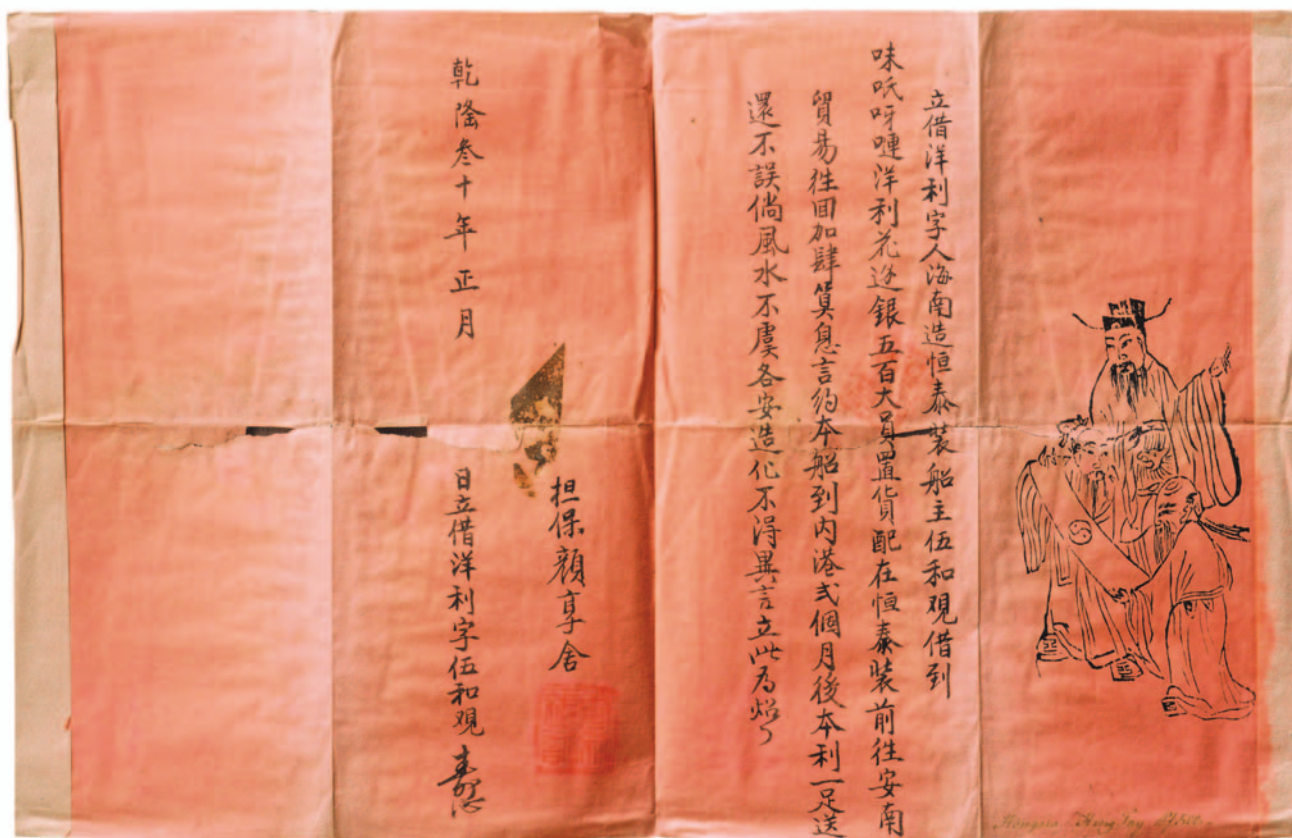 立借洋利字人海南造恒泰裝船主伍和覌借到
味呧呀嗹洋利花边銀五百大員置貨配在恒泰裝前往安南
貿易徃回加肆筭息言約本船到内港弍個月後本利一足送
還不誤倘風水不虞各安造化不得異言立此為炤
担保顔享舍
乾隆叁十年正月 日立借洋利字伍和覌